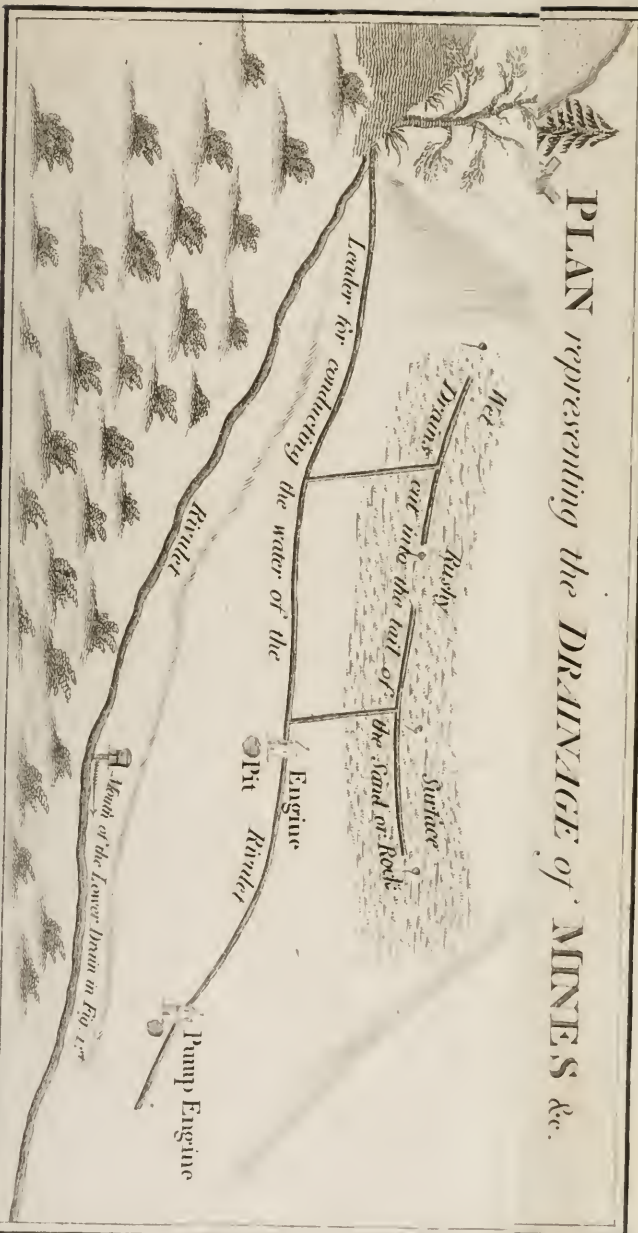 PLAN representing the DRAINAGE of MINES &c.
Wet Rushy Surface
Drains cut into the tail of the Sand or Rock
Leader for conducting the water of the Rivulet
Engine
Pit
Pump Engine
Rivulet
Mouth of the Lower Drain in Fig. 1.st